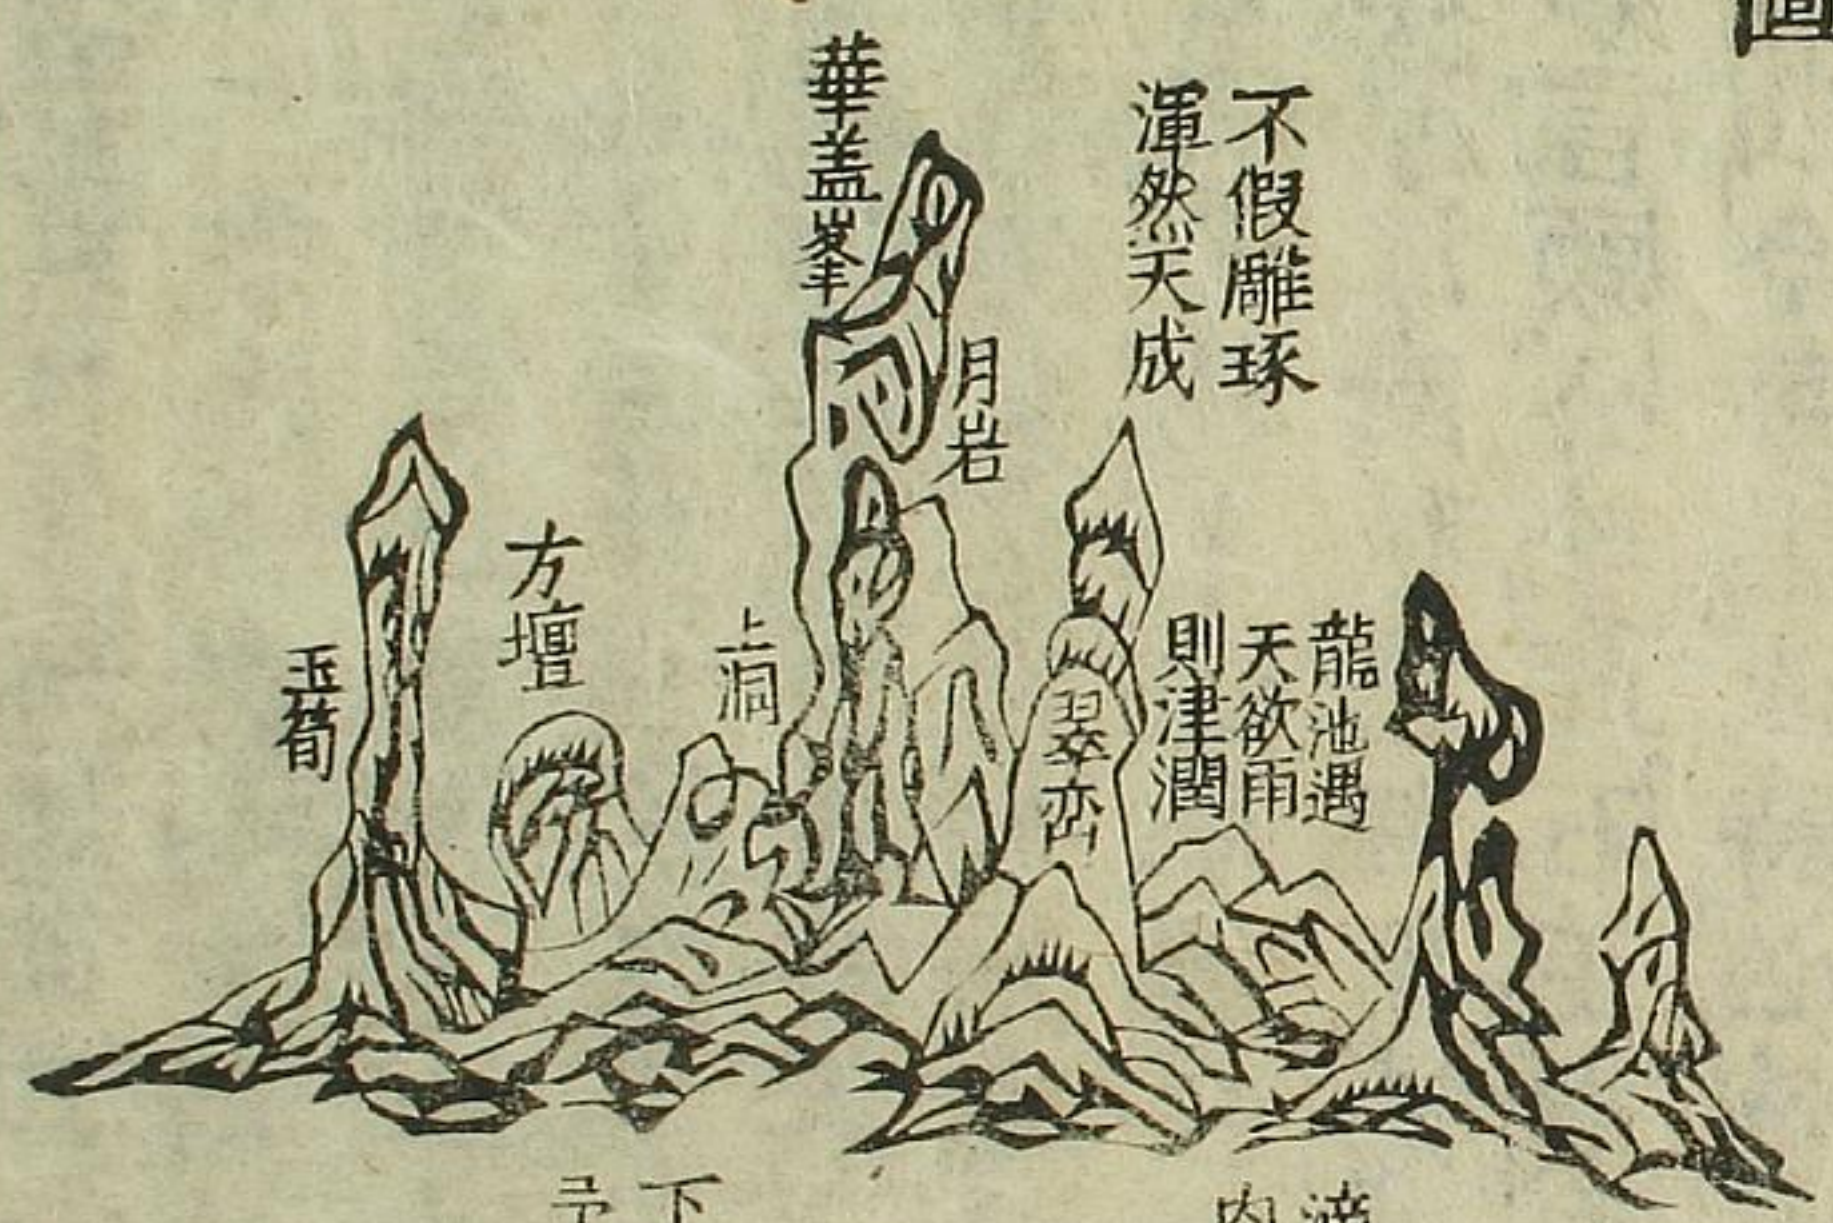 不假雕琢
渾然天成
華盖峯
月岩
龍池遇
天欲雨
則津潤
翠峦
上洞
方壇
玉筍